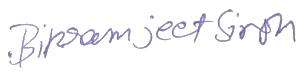 Bikramjeet Singh